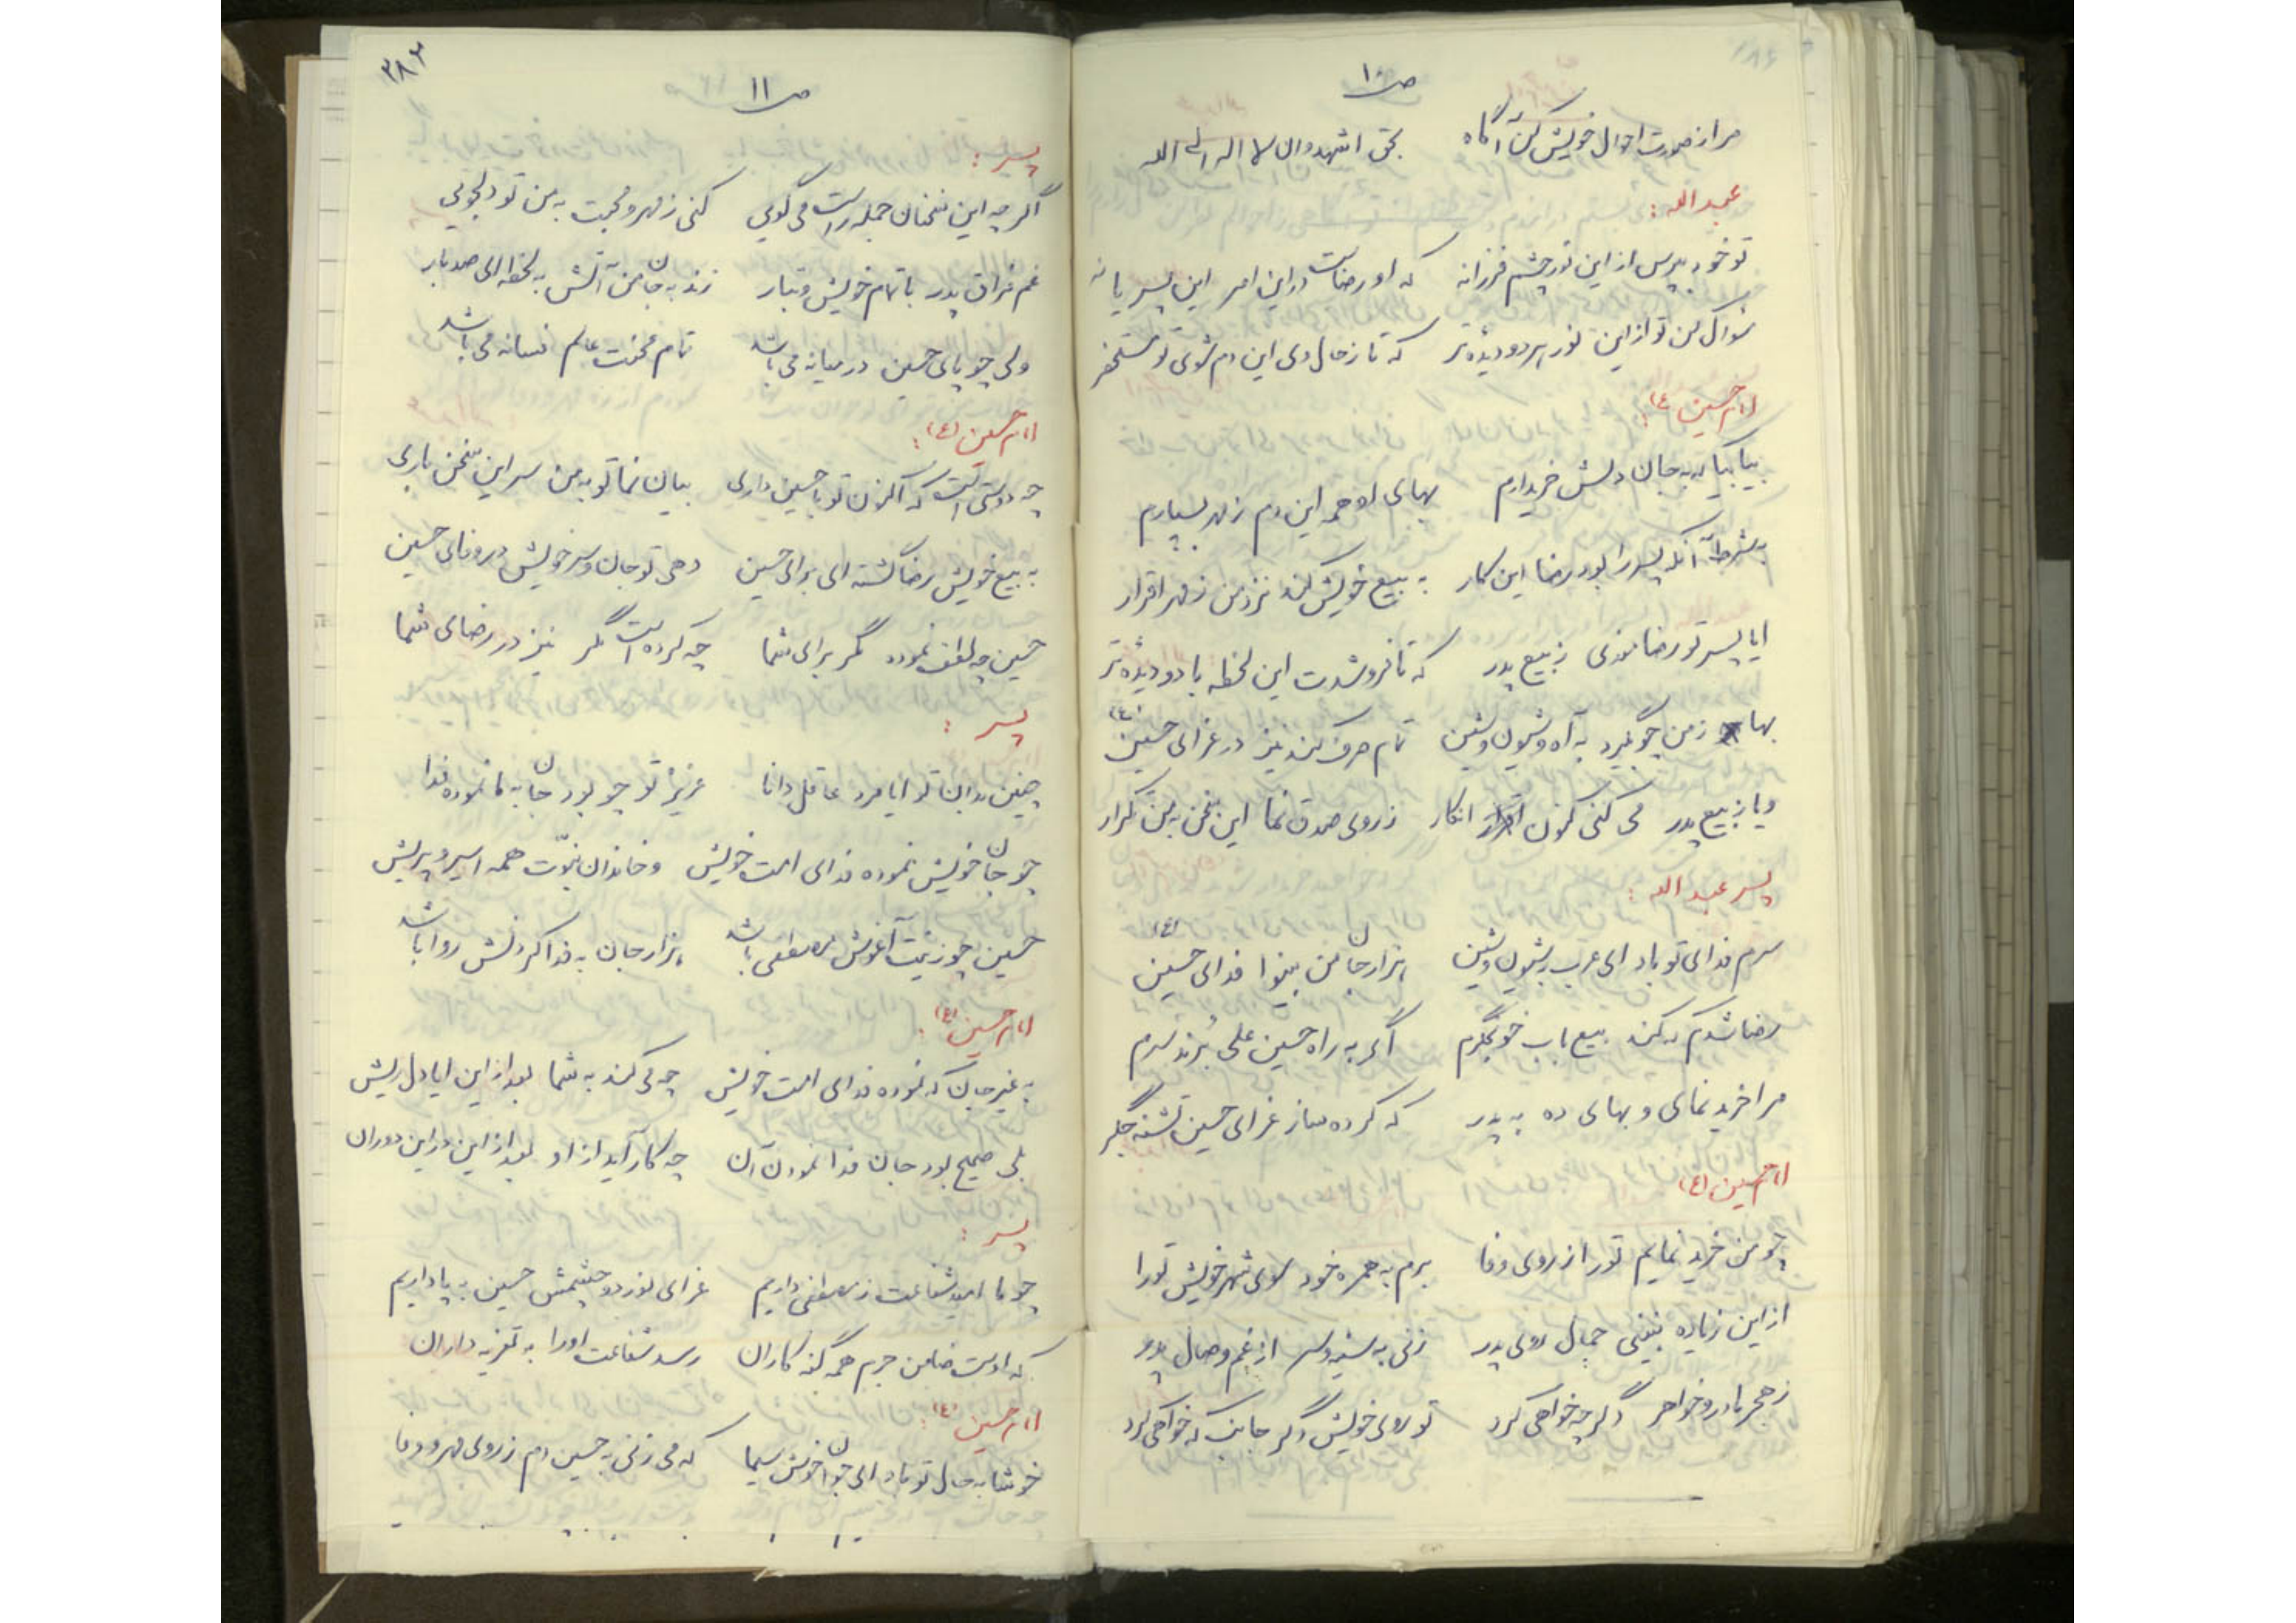 ص ۱۰
مرا ز صورت احوال خویش کن آگاه بحق اشهد و ان لا اله الی الله
عبدالله :
تو خود بپرس از این نور چشم فرزانه که او رضاست در این امر این پسر یا نه
سئوال کن تو از این نور هر دو دیده تر که تا ز حال وی این دم شوی تو مستحضر
امام حسین (ع) :
بیا بیا که به جان و دلش خریدارم بهای او همه این دم ز مهر بسپارم
بشرط آنکه پسر را بود رضا این کار به بیع خویش کند نزد من ز مهر اقرار
ایا پسر تو رضا بودی ز بیع پدر که تا فروشدت این لحظه با دو دیده تر
بها ز من چو بگیرد به آه و شیون و شین تمام صرف کند نیز در عزای حسین (ع)
و یا ز بیع پدر می کنی کنون انکار ز روی صدق نما این سخن به من تکرار
پسر عبدالله :
سرم فدای تو باد ای عرب بشیون و شین هزار جان من بینوا فدای حسین (ع)
رضا شدم که کند بیع باب خونجگرم اگر به راه حسین علی بُرند سرم
مرا خرید نمای و بهای ده به پدر که کرده ساز عزای حسین تشنه جگر
امام حسین (ع)
چو من خرید نمایم تو را از روی وفا برم به همره خود سوی شهر خویش تو را
از این زیاده نبینی جمال روی پدر زنی به سینه و سر از غم وصال پدر
ز هجر مادر و خواهر دگر چه خواهی کرد تو روی خویش دگر جانب که خواهی کرد
۳۸۴
ص ۱۱
پسر :
اگر چه این سخنان جمله راست می گویی کنی ز مهر و محبت به من تو دلجویی
غم فراق پدر با تمام خویش و تبار زند به جان من آتش به لحظه ای صد بار
ولی چو پای حسین در میانه می باشد تمام محنت عالم فسانه می باشد
امام حسین (ع) :
چه دوستی است که اکنون تو با حسین داری بیان نما تو به من سر این سخن باری
به بیع خویش رضا گشته ای برای حسین دهی تو جان و سر خویش در وفای حسین
حسین چه لطف نموده مگر برای شما چه کرده است مگر نیز در رضای شما
پسر :
چنین بدان تو ایا مرد عاقل دانا عزیزتر چو بود جان به ما نموده فدا
چو جان خویش نموده فدای امت خویش و خاندان نبوّت همه اسیر و پریش
حسین چو زینت آغوش مصطفی باشد هزار جان به فدا کردنش روا باشد
امام حسین (ع) :
به غیر جان که نموده فدای امت خویش چه می کند به شما بعد از این ایا دل ریش
بلی صحیح بود جان فدا نمودن آن چه کار آید از او بعد از این در این دوران
پسر :
چو ما امید شفاعت ز مصطفی داریم عزای نور دو چشمش حسین به پا داریم
که اوست ضامن جرم همه گنه کاران رسد شفاعت او را به تعزیه داران
امام حسین (ع) :
خوشا به حال تو باد ای جوان خوش سیما که می زنی به حسین دم ز روی مهر و وفا